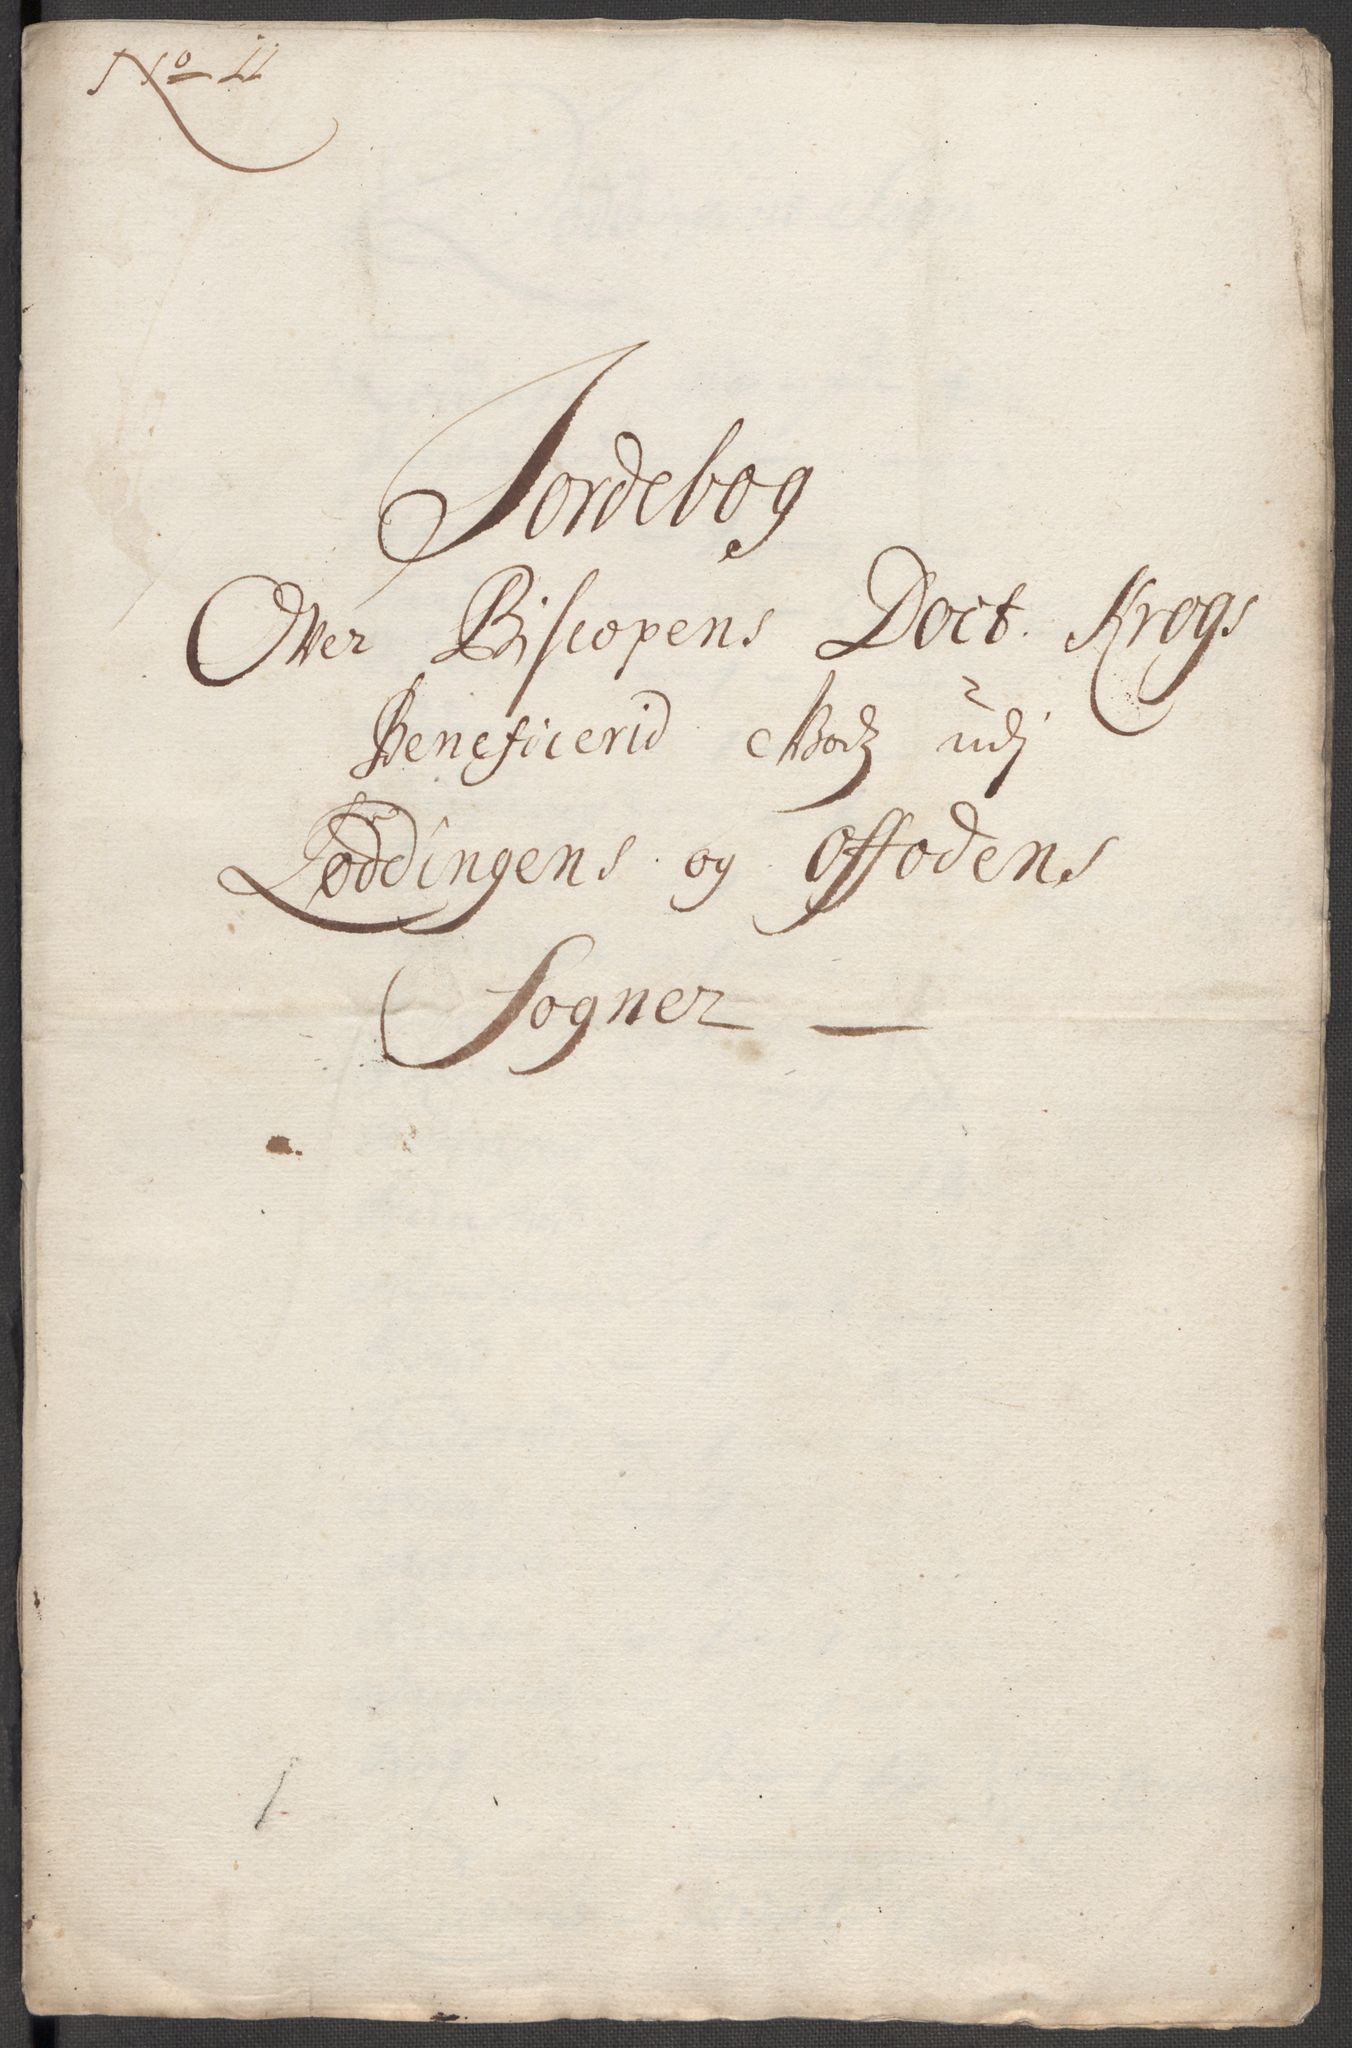 No 11
Jordebog
Over Biscopens Doct. Krogs
Beneficerid godz udj
Løddingens og Offodens
Sogner